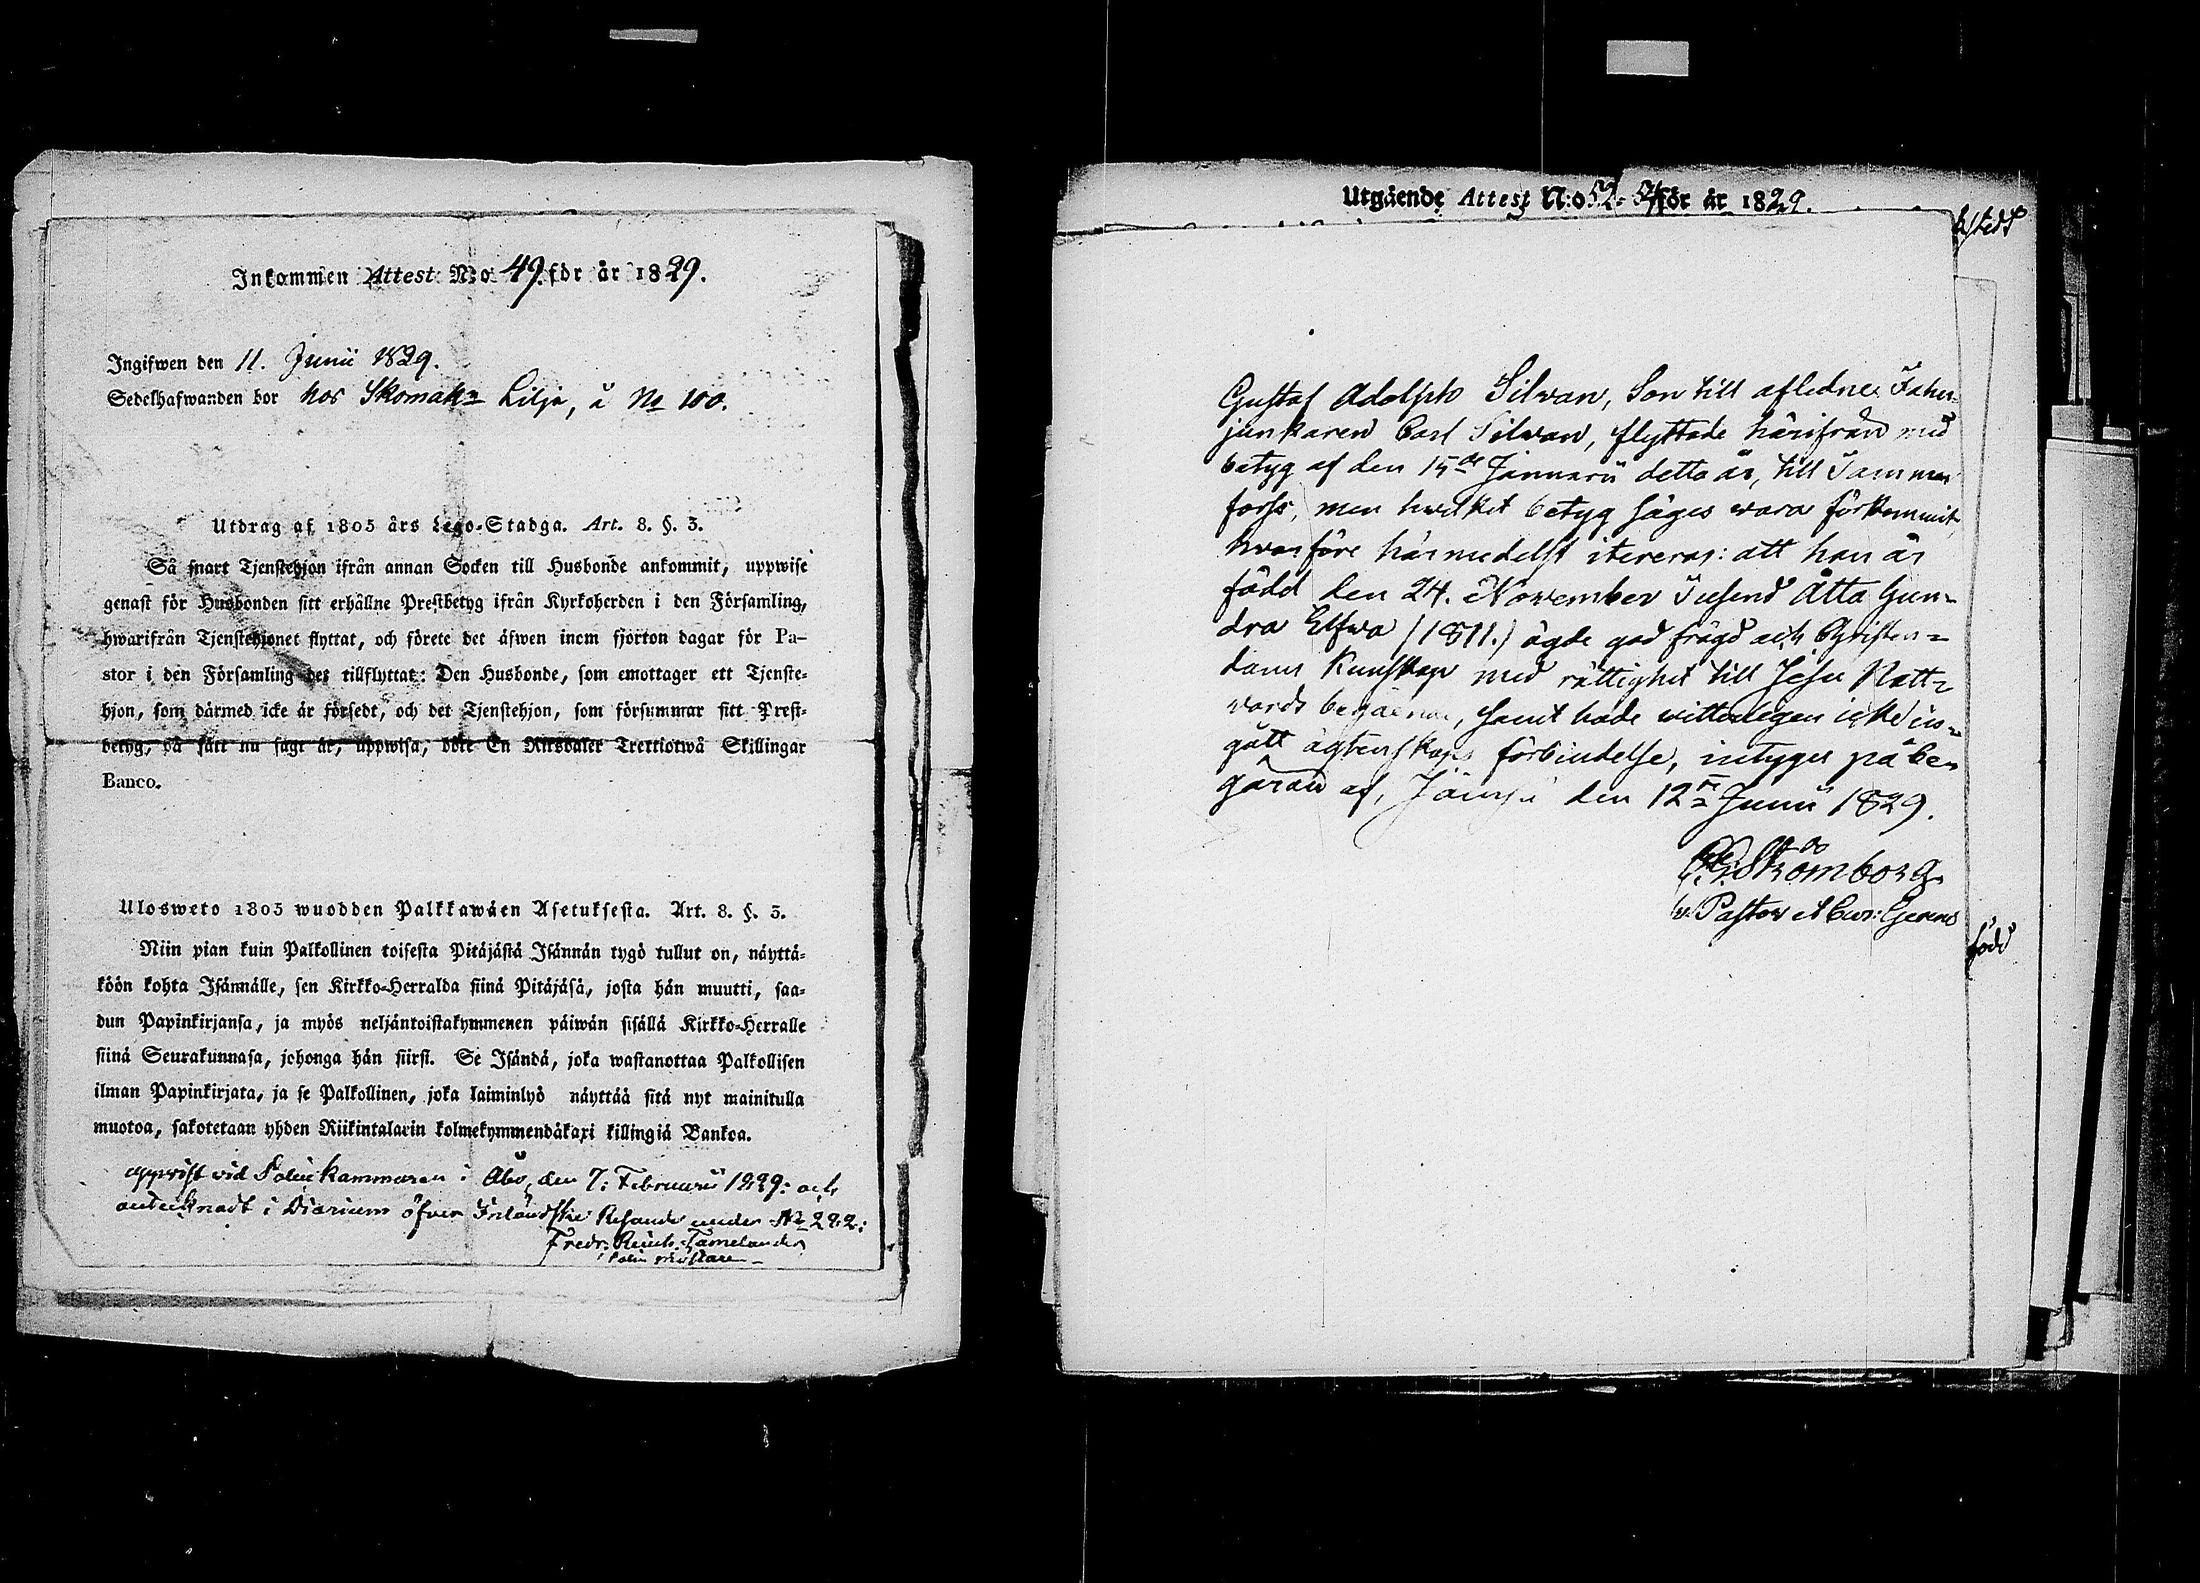 Inkommen Attest N:o 49. för år 1829.
Ingifwen den 11. Junii 1829.
Sedelhafwanden bor hos Skomak:n Lilja, å No 100.
Utdrag af 1805 års Lego-Stadga. Art. 8. §. 3.
Så snart Tjenstehjon ifrån annan Socken till Husbonde ankommit, uppwise
genast för Husbonden sitt erhållne Prestbetyg ifrån Kyrkoherden i den Församling,
hwarifrån Tjenstehjonet flyttat, och förete det äfwen inom fjorton dagar för Pa-
stor i den Församling det tillflyttat: Den Husbonde, som emottager ett Tjenste-
hjon, som därmed icke är försedt, och det Tjenstehjon, som försummar sitt Prest-
betyg, på sätt nu sagt är, uppwisa, böte En Riksdaler Trettiotwå Skillingar
Banco.
Ulosweto 1805 wuodden Palkkawäen Asetuksesta. Art. 8. §. 3.
Niin pian kuin Palkollinen toisesta Pitäjästä Isännän tygö tullut on, näyttä-
köön kohta Isännälle, sen Kirkko-Herralda siinä Pitäjäsä, josta hän muutti, saa-
dun Papinkirjansa, ja myös neljäntoistakymmenen päiwän sisällä Kirkko-Herralle
siinä Seurakunnasa, johonga hän siirsi. Se Isändä, joka wastanottaa Palkollisen
ilman Papinkirjata, ja se Palkollinen, joka laiminlyö näyttää sitä nyt mainitulla
muotoa, sakotetaan yhden Riikintalarin kolmekymmendäkaxi killingiä Bankoa.
uppvist vid Police kammaren i Åbo, den 7: Februarii 1829: och
antecknadt i Diarium öfver Inländske Resande under No 292:
Fredr. Reinh. Tamelander
Police mästare
Utgående Attest N:o 52. 54 för år 1829.
Gustaf Adolph Silvan, Son till aflednes Fahn-
junkaren Carl Silvan, flyttade härifrån med
betyg af den 15de Januarii detta år, till Tammer
forss, men hwilket betyg säges wara förkommit,
hvarföre härmedelst itereras: att han är
född den 24. November Tusend Åtta Hun-
dra Elfwa (1811.) ägde god frägd och Christen-
doms kunskap med rättighet till Jesu Natt-
vards begående, samt hade witterligen icke in-
gått ägtenskaps förbindelse, intygas på be-
gäran af, Jämsä den 12te Junii 1829.
Strömborg
v. Pastor
född